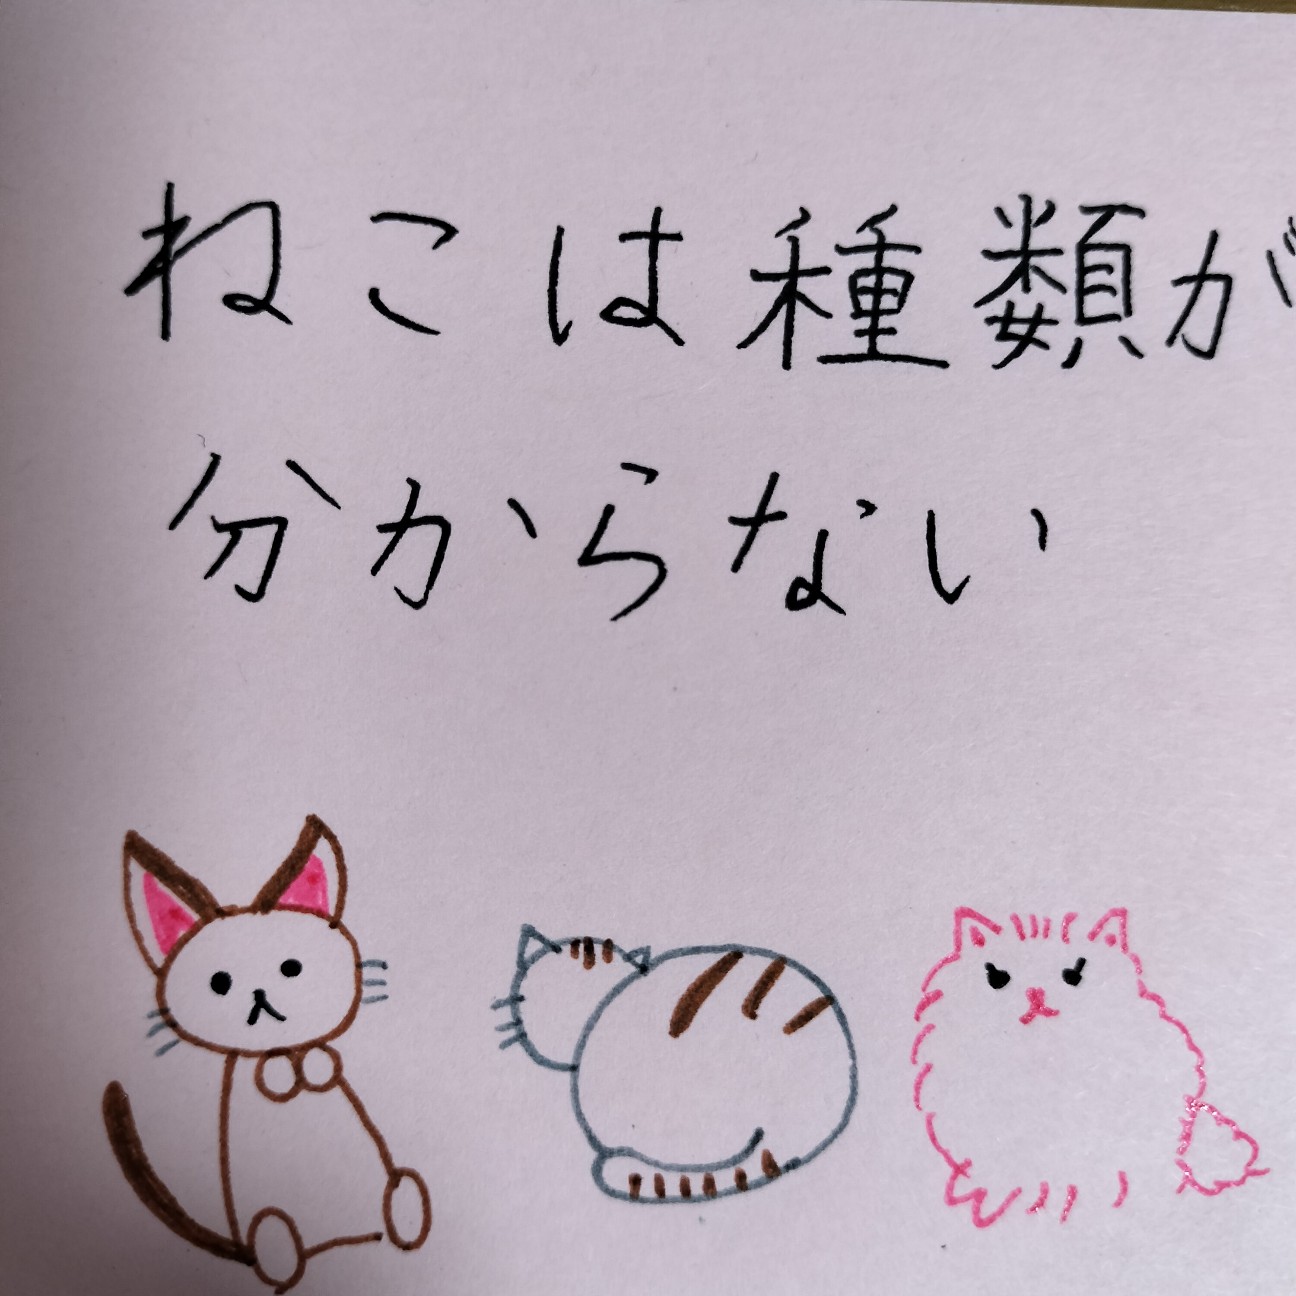 ねこは種類が
分からない